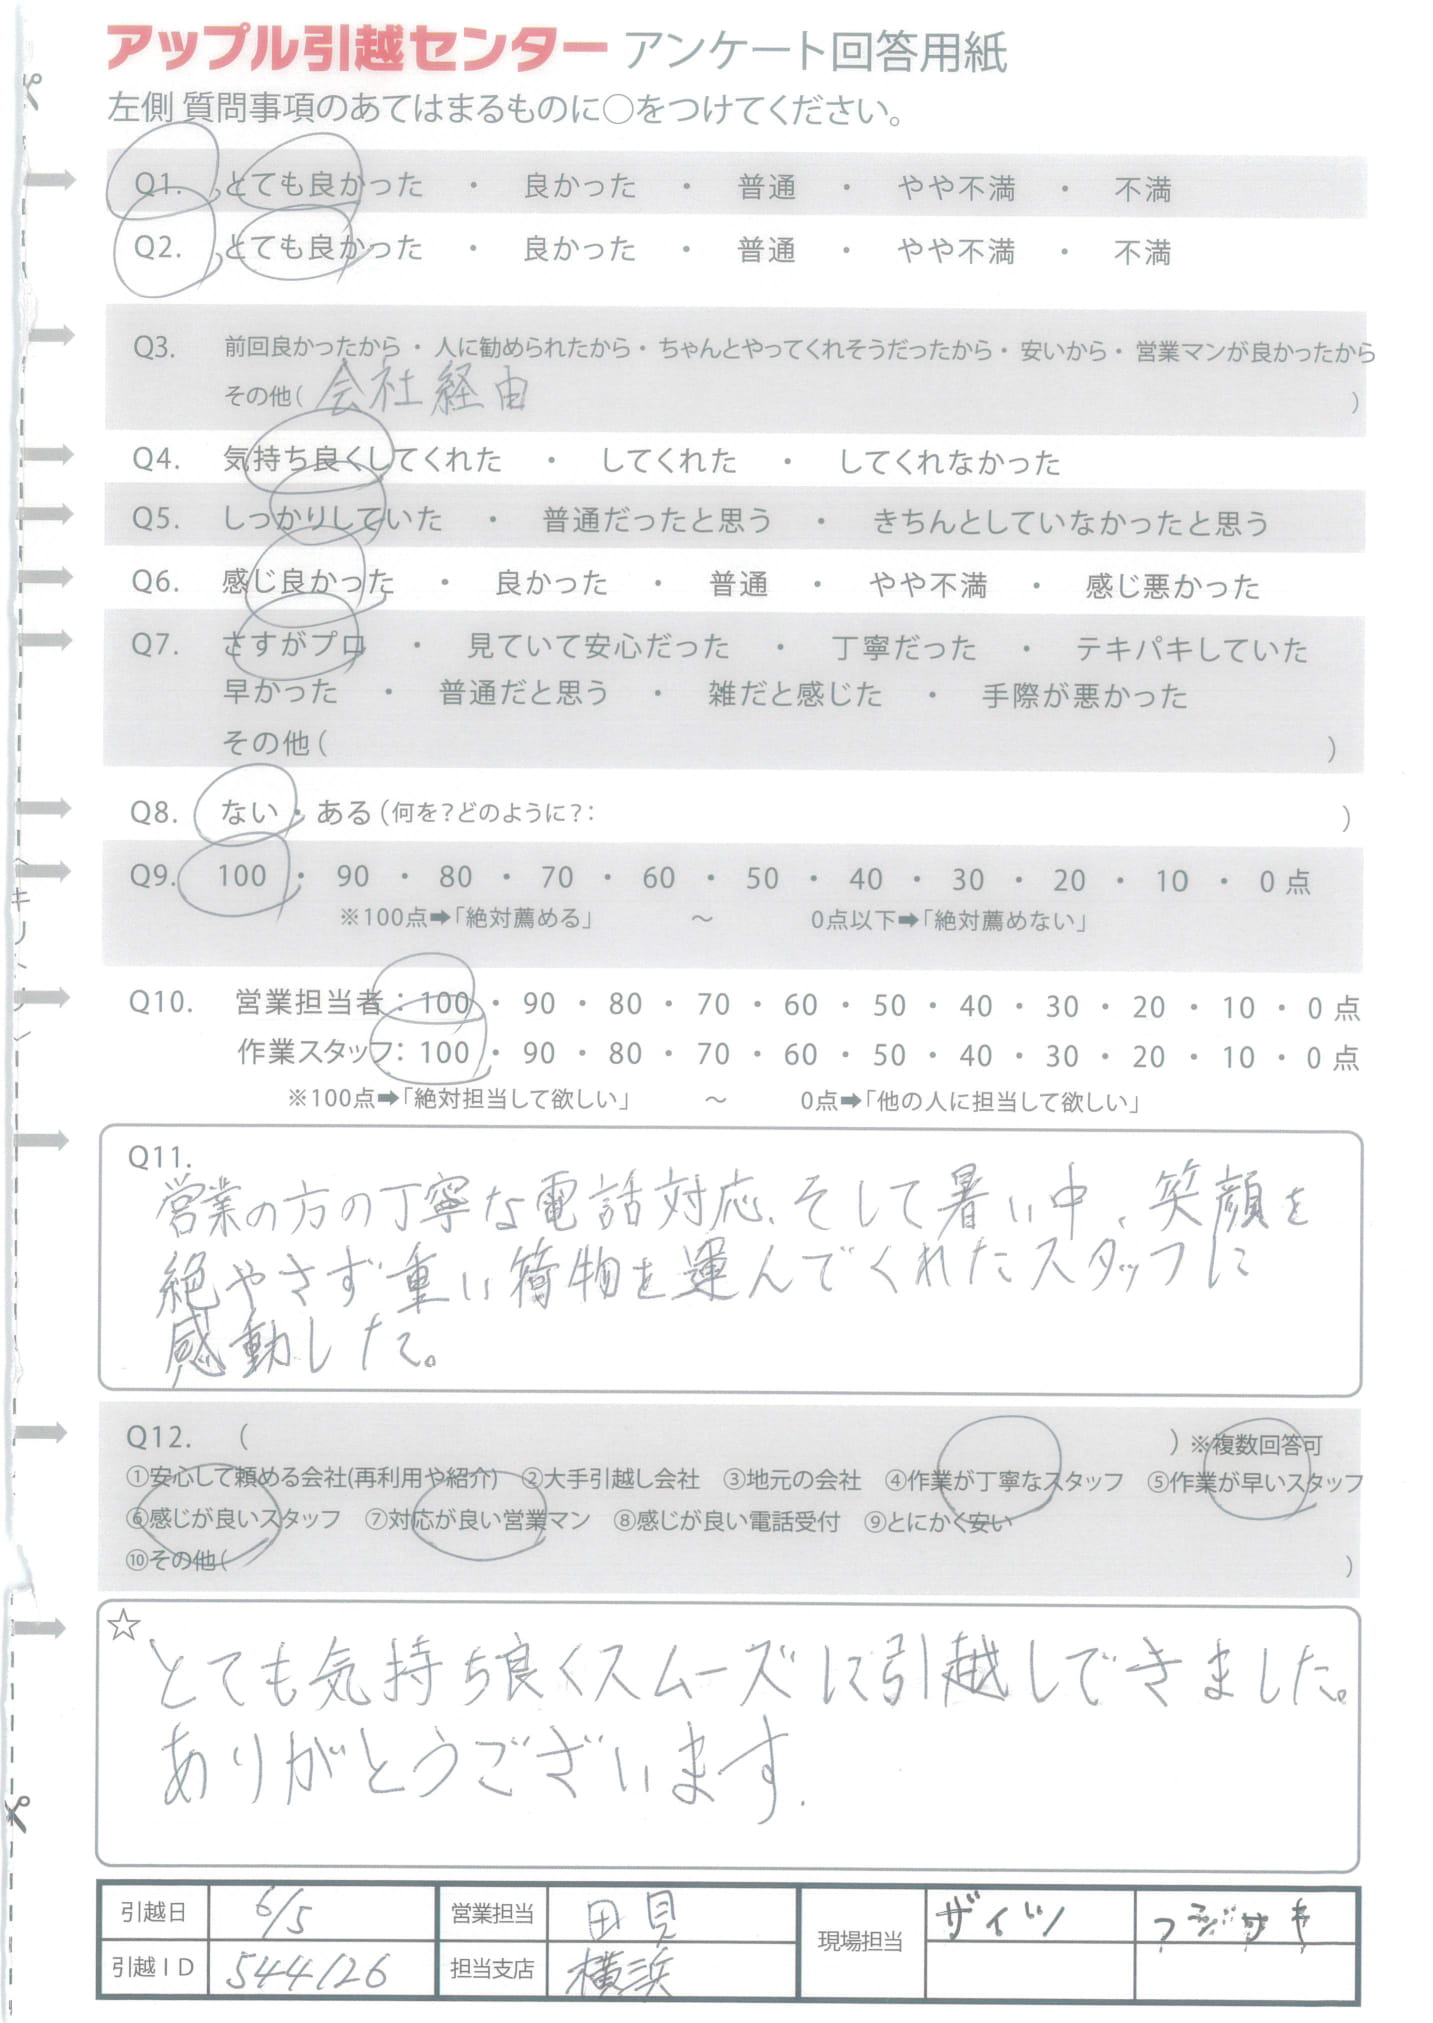 アップル引越センター アンケート回答用紙
左側 質問事項のあてはまるものに○をつけてください。
Q1. とても良かった ・ 良かった ・ 普通 ・ やや不満 ・ 不満
Q2. とても良かった ・ 良かった ・ 普通 ・ やや不満 ・ 不満
Q3. 前回良かったから・ 人に勧められたから・ ちゃんとやってくれそうだったから・ 安いから・ 営業マンが良かったから
その他( 会社経由 )
Q4. 気持ち良くしてくれた ・ してくれた ・ してくれなかった
Q5. しっかりしていた ・ 普通だったと思う ・ きちんとしていなかったと思う
Q6. 感じ良かった ・ 良かった ・ 普通 ・ やや不満 ・ 感じ悪かった
Q7. さすがプロ ・ 見ていて安心だった ・ 丁寧だった ・ テキパキしていた
早かった ・ 普通だと思う ・ 雑だと感じた ・ 手際が悪かった
その他( )
Q8. ない ・ ある(何を?どのように?: )
Q9. 100 ・ 90 ・ 80 ・ 70 ・ 60 ・ 50 ・ 40 ・ 30 ・ 20 ・ 10 ・ 0 点
※100点➡「絶対薦める」 ～ 0点以下➡「絶対薦めない」
Q10. 営業担当者：100 ・ 90 ・ 80 ・ 70 ・ 60 ・ 50 ・ 40 ・ 30 ・ 20 ・ 10 ・ 0 点
作業スタッフ：100 ・ 90 ・ 80 ・ 70 ・ 60 ・ 50 ・ 40 ・ 30 ・ 20 ・ 10 ・ 0 点
※100点➡「絶対担当して欲しい」 ～ 0点➡「他の人に担当して欲しい」
Q11.
営業の方の丁寧な電話対応、そして暑い中、笑顔を
絶やさず重い荷物を運んでくれたスタッフに
感動した。
Q12. ( ) ※複数回答可
①安心して頼める会社(再利用や紹介) ②大手引越し会社 ③地元の会社 ④作業が丁寧なスタッフ ⑤作業が早いスタッフ
⑥感じが良いスタッフ ⑦対応が良い営業マン ⑧感じが良い電話受付 ⑨とにかく安い
⑩その他( )
☆
とても気持ち良くスムーズに引越しできました。
ありがとうございます.
引越日 6/5 営業担当 田見 現場担当 ザイツ フジサキ
引越ID 544126 担当支店 横浜